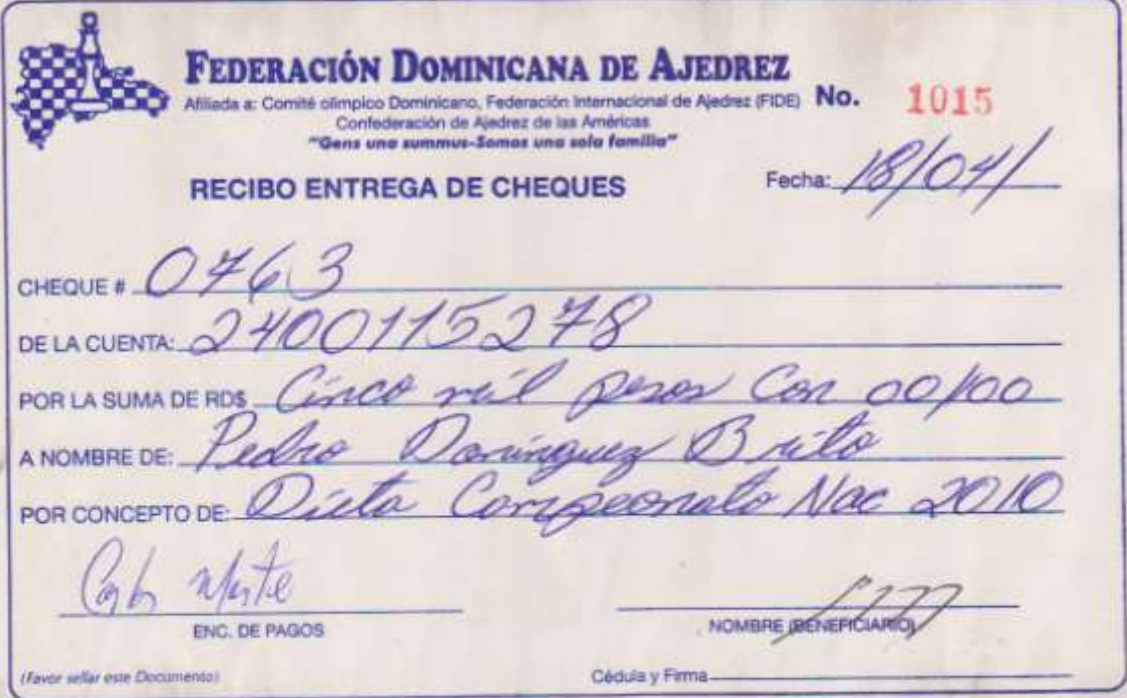 FEDERACIÓN DOMINICANA DE AJEDREZ
Afiliada a: Comité olímpico Dominicano, Federación Internacional de Ajedrez (FIDE) No. 1015
Confederación de Ajedrez de las Américas
"Gens una summus-Somos una sola familia"
RECIBO ENTREGA DE CHEQUES Fecha: 18/04/
CHEQUE # 0763
DE LA CUENTA: 2400115278
POR LA SUMA DE RD$ Cinco mil pesos Con 00/00
A NOMBRE DE: Pedro Domínguez Brito
POR CONCEPTO DE: Dieta Campeonato Nac 2010
ENC. DE PAGOS NOMBRE (BENEFICIARIO)
(Favor sellar este Documento) Cédula y Firma